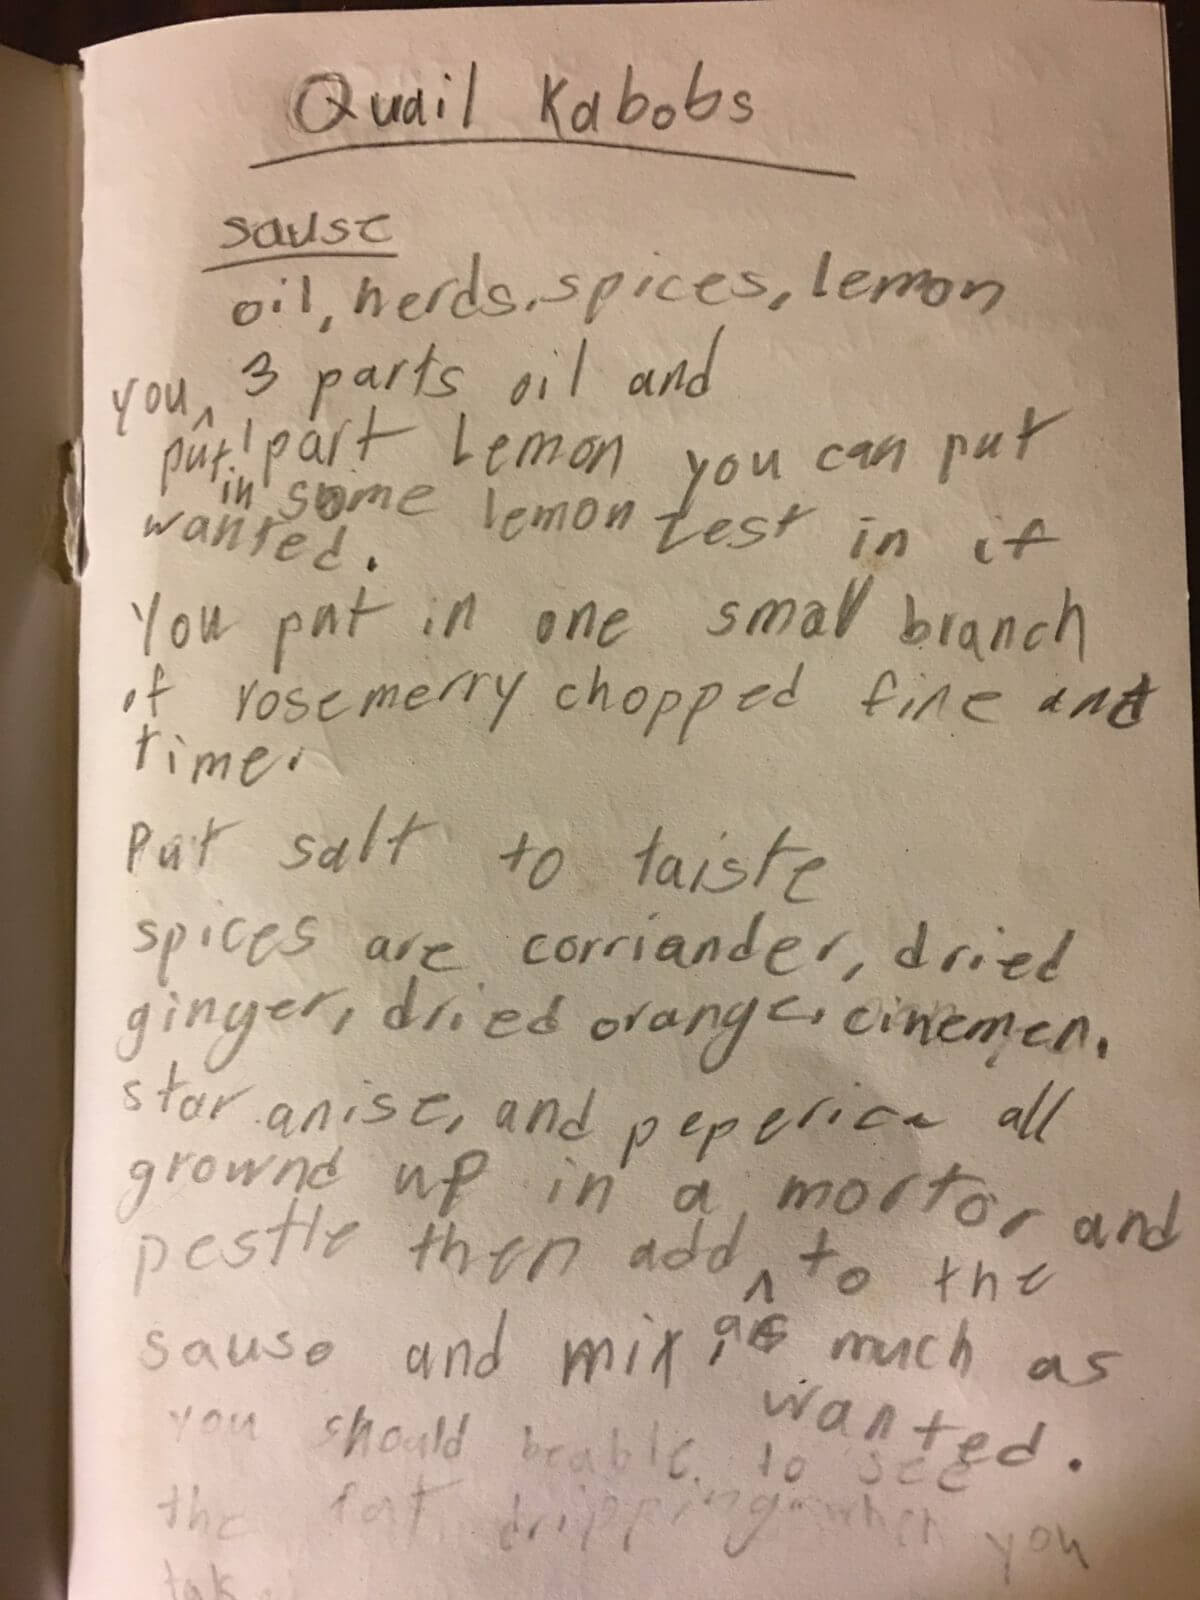 Quail Kabobs
sause
oil, herds, spices, lemon
you ^ 3 parts oil and
put 1 part Lemon you can put
in some lemon zest in if
wanted.
You put in one small branch
of rosemerry chopped fine and
time.
Put salt to taiste
spices are corriander, dried
ginger, dried orange, cinemen,
star anise, and peperica all
grownd up in a mortor and
pestle then add ^ to the
sause and mix, as much as
wanted.
you should beable to see
the fat dripping when you
tak